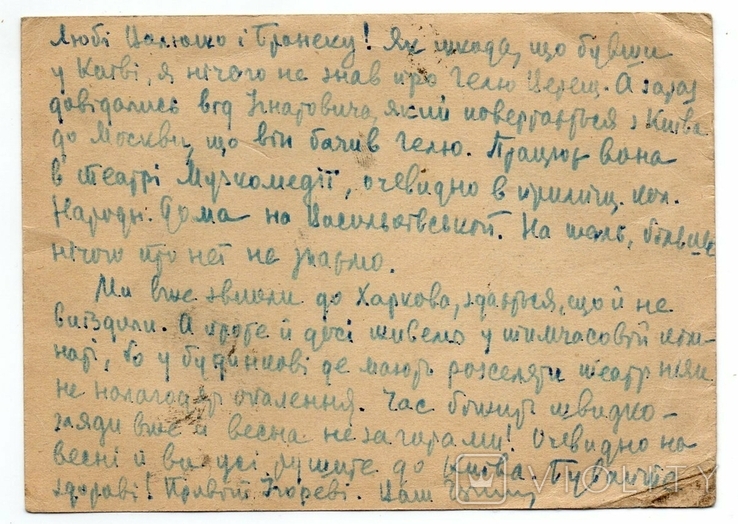 Любі Цалюшо і Бронеку! Як шкода, що бувши
у Києві, я нічого не знав про Гелю Церещ. А зараз
довідались від Ігнатовича, який повертається з Києва
до Москви, що він бачив Гелю. Працює вона
в театрі Музкомедії, очевидно в приміщ. кол.
Народн. Дома на Васильківській. На жаль, більше
нічого про неї не знаємо.
Ми вже звикли до Харкова, здається, що й не
виїздили. А проте й досі живемо у тимчасовій кім-
наті, бо у будинкові де мають розселяти театр ніяк
не налагодять опалення. Час біжить швидко -
гляди вже й весна не за горами! Очевидно на
весні й ви усі рушите до Києва. Бувайте
здорові! Привіт Ігореві. Ваш
VIOLITY